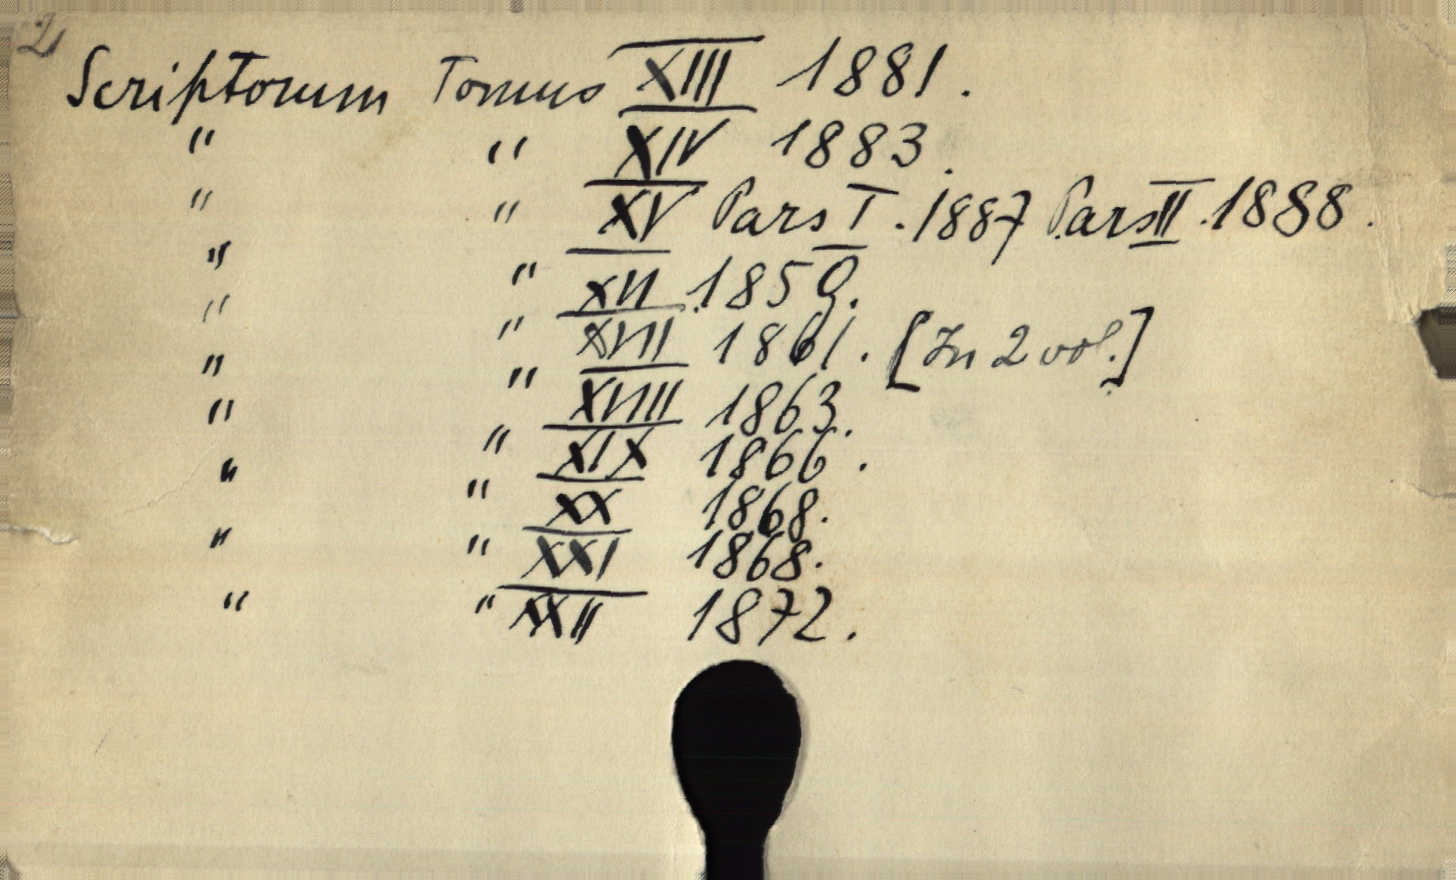 2
Scriptorum Tomus XIII 1881.
" " XIV 1883.
" " XV Pars I. 1887 Pars II. 1888.
" " XVI 1859.
" " XVII 1861. [In 2 vol.]
" " XVIII 1863.
" " XIX 1866.
" " XX 1868.
" " XXI 1868.
" " XXII 1872.